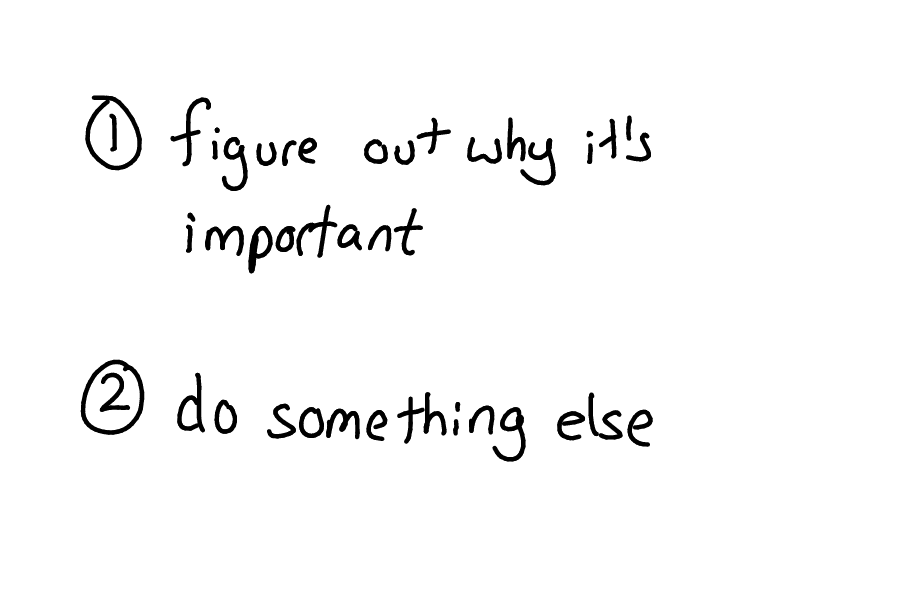 ① figure out why it's
important
② do something else